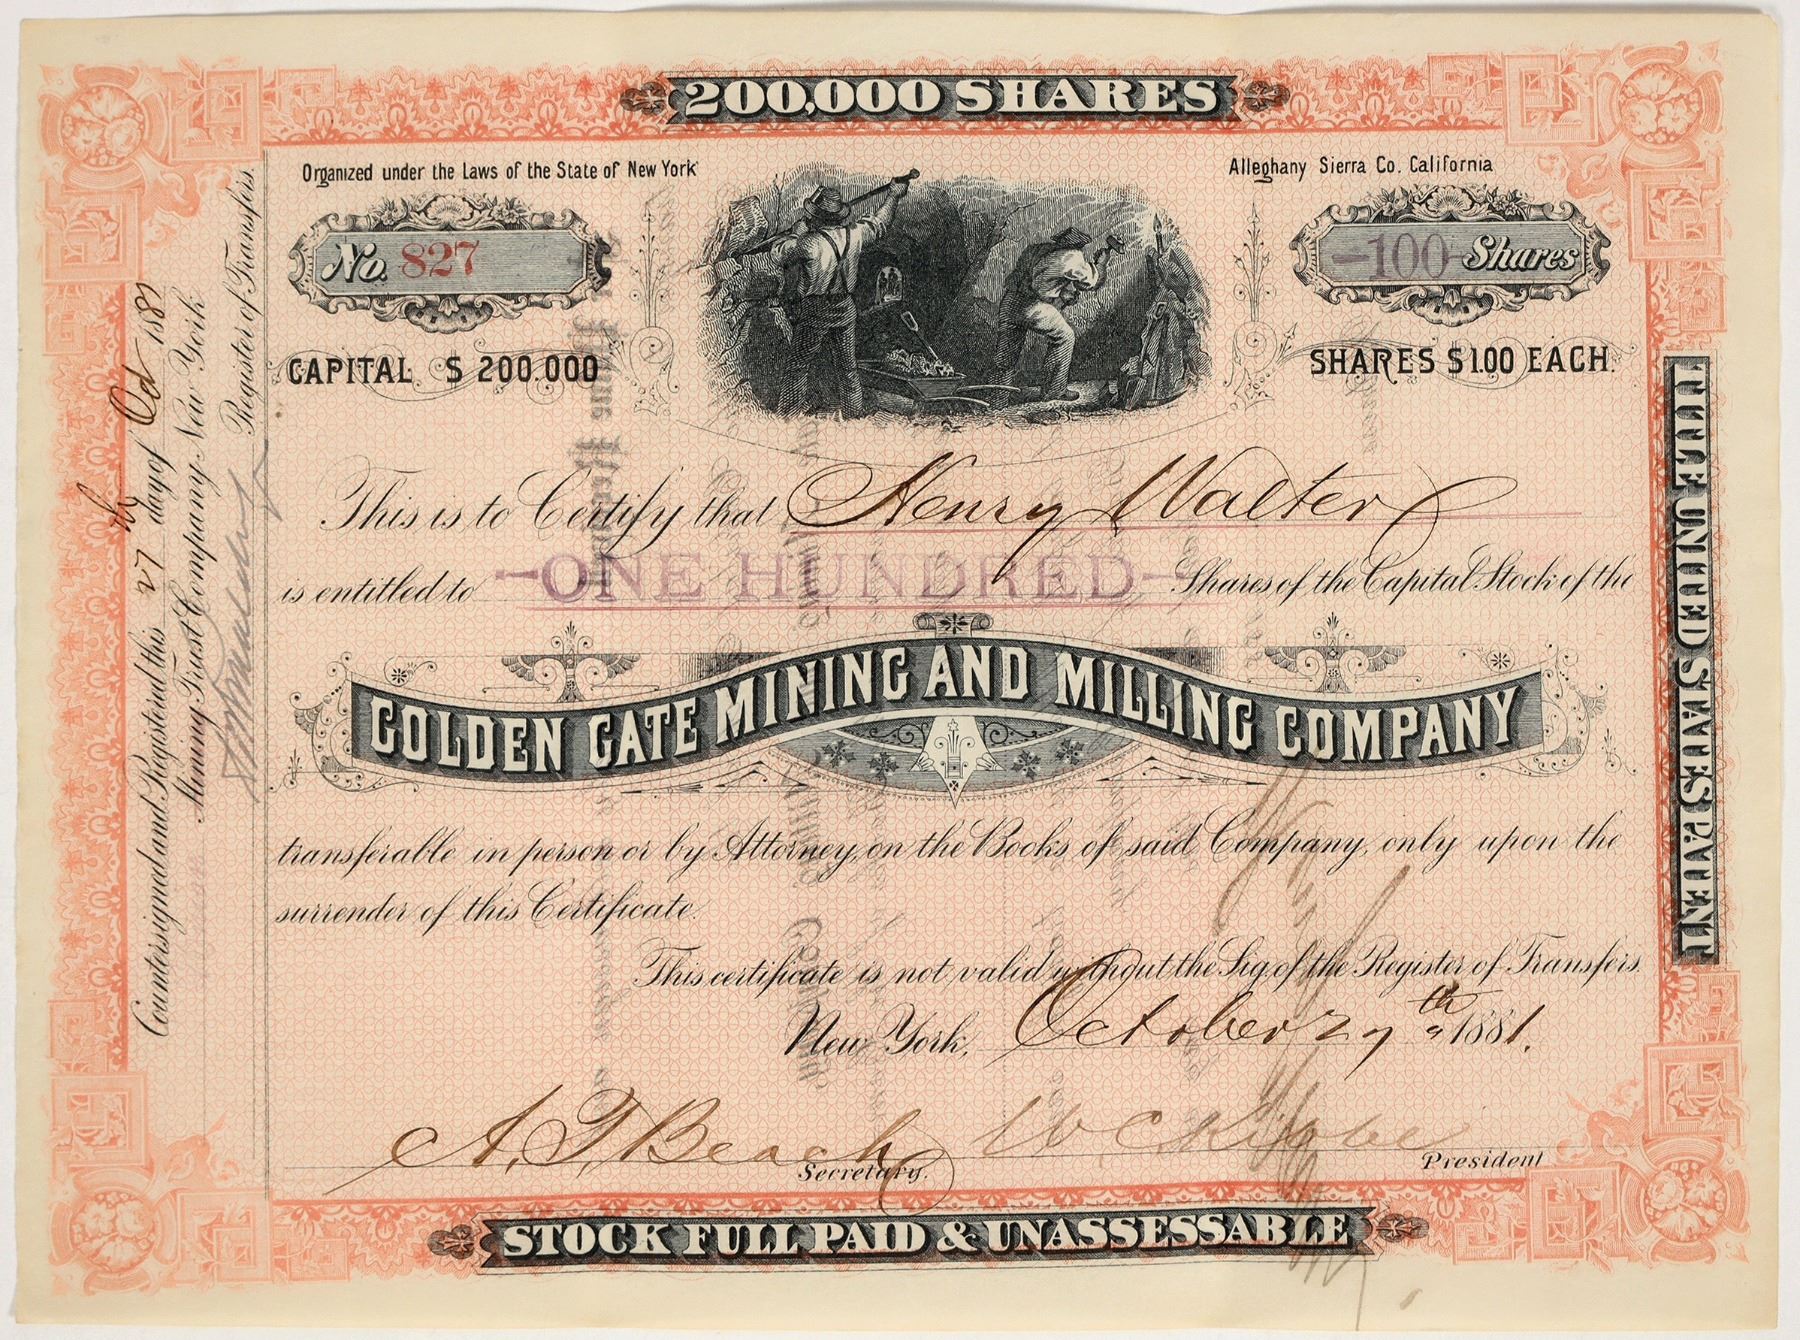 200,000 SHARES
Organized under the Laws of the State of New York
Alleghany Sierra Co. California
No. 827
-100- Shares
CAPITAL $ 200.000
SHARES $1.00 EACH.
This is to Certify that Henry Walter
is entitled to -ONE HUNDRED- Shares of the Capital Stock of the
GOLDEN GATE MINING AND MILLING COMPANY
transferable in person or by Attorney, on the Books of said Company, only upon the
surrender of this Certificate.
This certificate is not valid without the Sig. of the Register of Transfers.
New York, October 27th 1881.
A. T. Beach
Secretary.
President
STOCK FULL PAID & UNASSESSABLE
Countersigned and Registered this 27th day of Oct 1881
Mining Trust Company, New York
Register of Transfers.
TITLE UNITED STATES PATENT